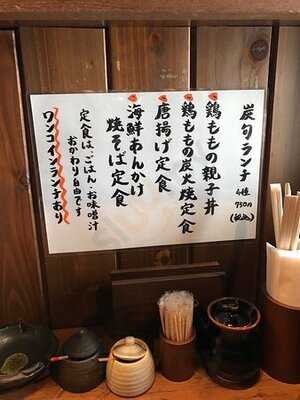 炭旬ランチ
4種
750円
(税込)
鶏ももの親子丼
鶏ももの炭火焼定食
唐揚げ定食
海鮮あんかけ
焼そば定食
定食は、ごはん・お味噌汁
おかわり自由です
ワンコインランチあり